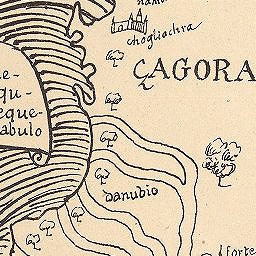 nama
chogliachra
ÇAGORA
e-
qu-
eque-
abulo
danubio
forte